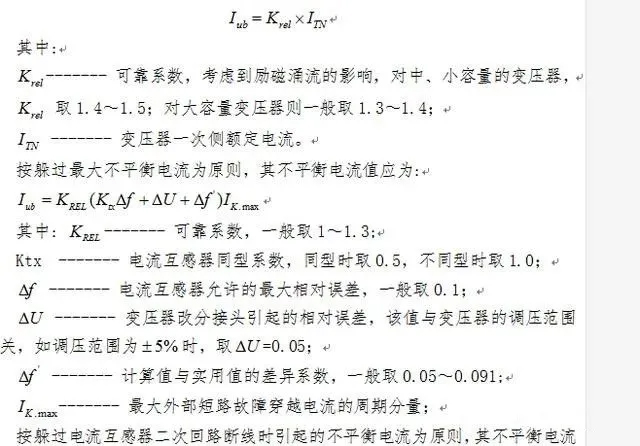 I ub = K rel × I TN
其中:
K rel------- 可靠系数，考虑到励磁涌流的影响，对中、小容量的变压器，
K rel 取 1.4～1.5；对大容量变压器则一般取 1.3～1.4；
I TN ------- 变压器一次侧额定电流。
按躲过最大不平衡电流为原则，其不平衡电流值应为:
I ub = K REL (K tx Δf + ΔU + Δf')I K.max
其中: K REL------- 可靠系数，一般取 1～1.3;
Ktx ------- 电流互感器同型系数，同型时取 0.5，不同型时取 1.0；
Δf ------- 电流互感器允许的最大相对误差，一般取 0.1；
ΔU ------- 变压器改分接头引起的相对误差，该值与变压器的调压范围
关，如调压范围为±5%时，取ΔU=0.05；
Δf' ------- 计算值与实用值的差异系数，一般取 0.05～0.091;
I K.max------- 最大外部短路故障穿越电流的周期分量；
按躲过电流互感器二次回路断线时引起的不平衡电流为原则，其不平衡电流